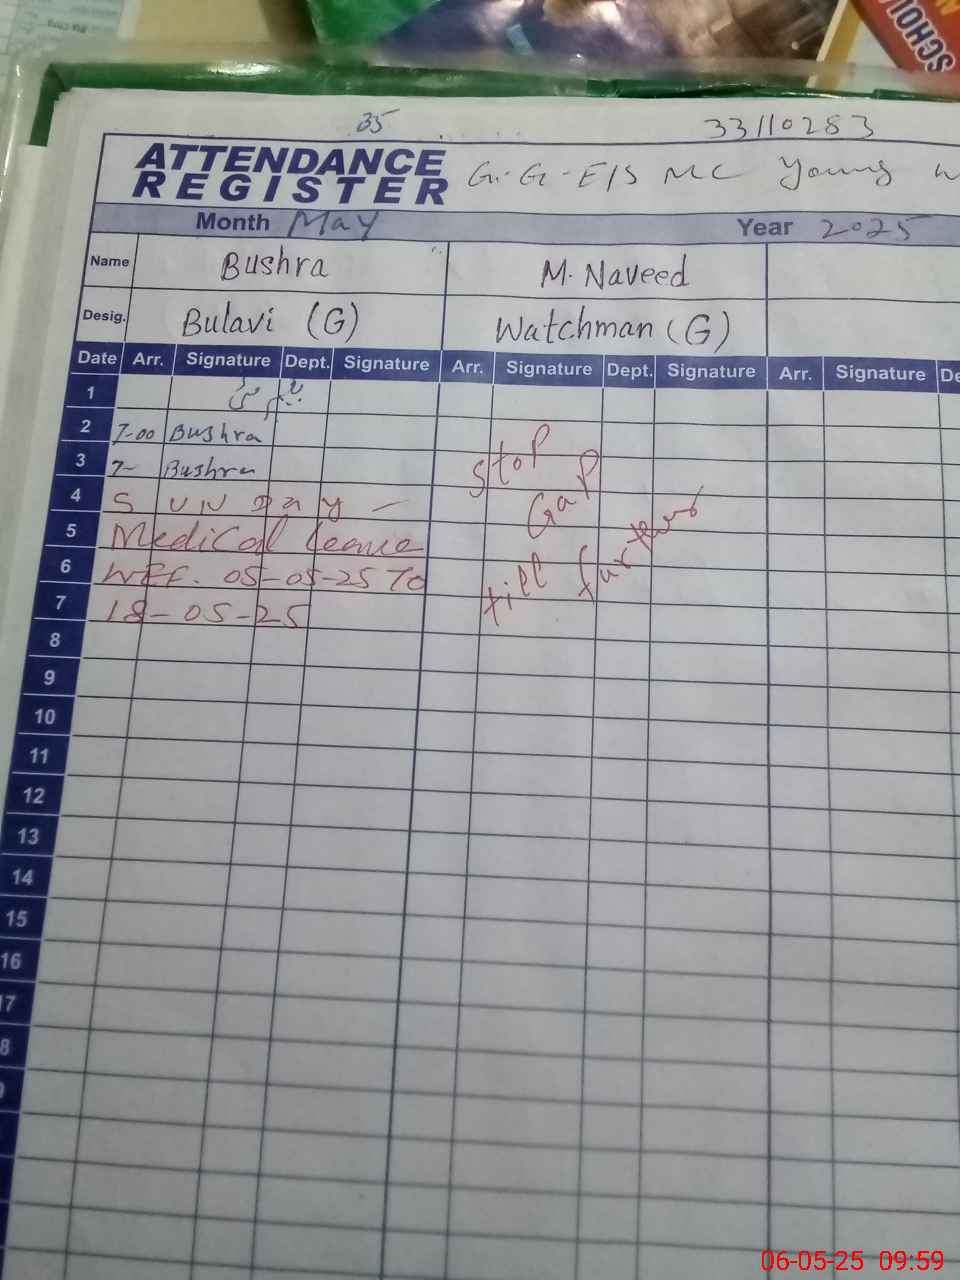 SCHOOL
35
33110283
ATTENDANCE
REGISTER
G.G.E/S MC Young
Month May
Year 2025
Name Bushra M. Naveed
Desig. Bulavi (G) Watchman (G)
Date Arr. Signature Dept. Signature Arr. Signature Dept. Signature Arr. Signature De
1
2 7-00 Bushra
3 7- Bushra
4 SUNDAY -
5 Medical leave
6 WEF. 05-05-25 To
7 18-05-25
Stop
Gap
till further
8
9
10
11
12
13
14
15
16
17
8
06-05-25 09:59